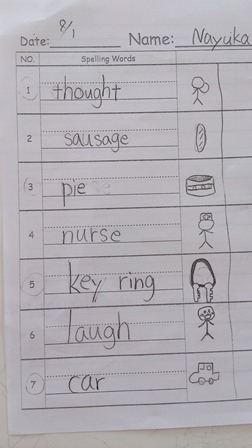 Date: 8/1 Name: Nayuka
NO. Spelling Words
1 thought
2 sausage
3 pie
4 nurse
5 key ring
6 laugh
7 car